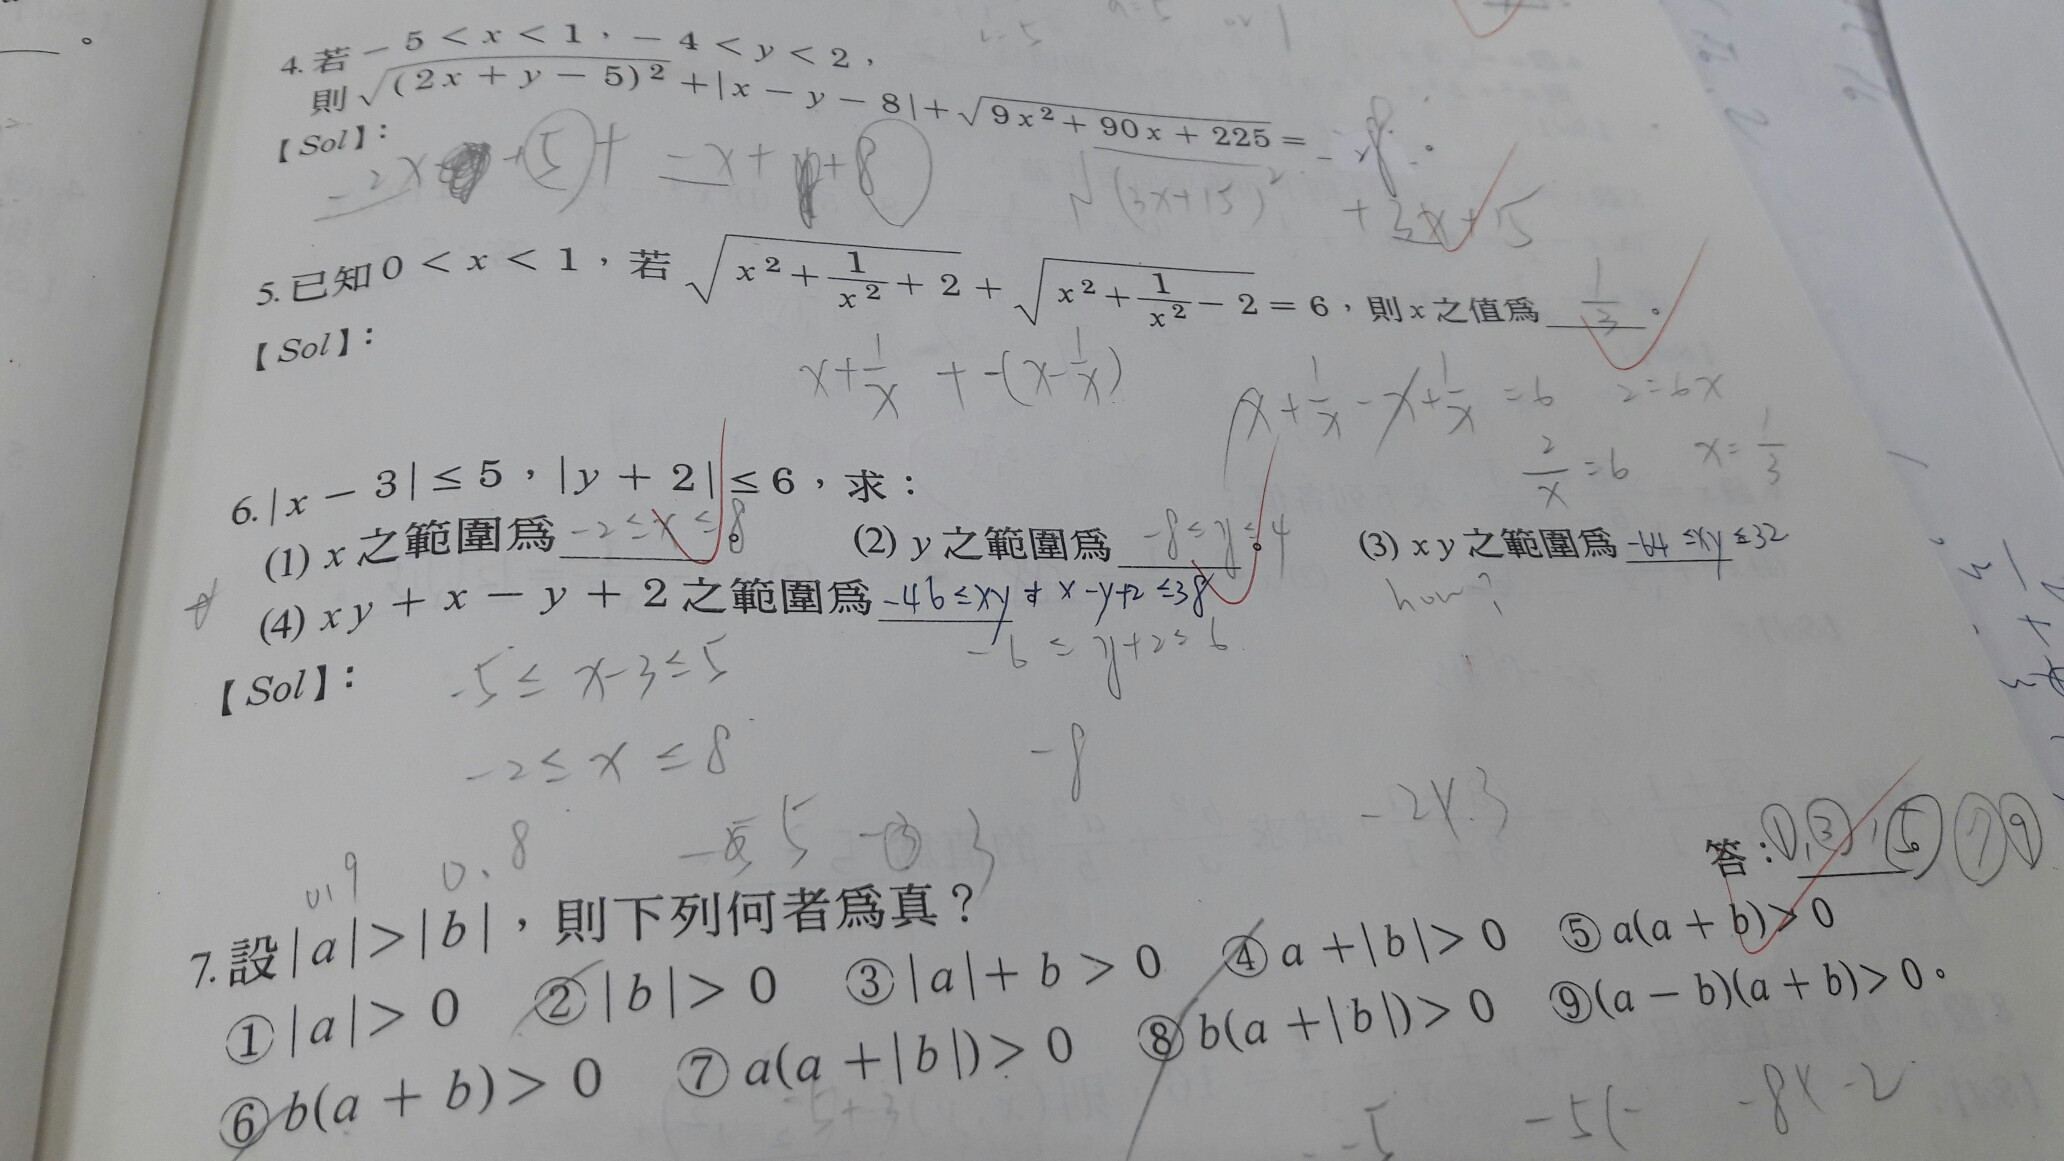 4. 若 -5 < x < 1，-4 < y < 2，
則 √(2x + y - 5)² + |x - y - 8| + √9x² + 90x + 225 = 。
【Sol】：
√(3x+15)²
+3x+15
5. 已知 0 < x < 1，若 √x² + 1/x² + 2 + √x² + 1/x² - 2 = 6，則 x 之值為 1/3 。
【Sol】：
x + 1/x + -(x - 1/x)
x + 1/x - x + 1/x = 6 2 = 6x
2/x = 6 x = 1/3
6. |x - 3| ≤ 5，|y + 2| ≤ 6，求：
(1) x 之範圍為 -2 ≤ x ≤ 8 。 (2) y 之範圍為 -8 ≤ y ≤ 4 。 (3) xy 之範圍為 -64 ≤ xy ≤ 32
how?
(4) xy + x - y + 2 之範圍為 -46 ≤ xy + x - y + 2 ≤ 38
-6 ≤ y+2 ≤ 6
【Sol】： -5 ≤ x-3 ≤ 5
-2 ≤ x ≤ 8 -8
答：①,③,⑤⑦⑨
0.9 0.8
7. 設 |a| > |b|，則下列何者為真？
①|a| > 0 ②|b| > 0 ③|a| + b > 0 ④a + |b| > 0 ⑤a(a + b) > 0
⑥b(a + b) > 0 ⑦a(a + |b|) > 0 ⑧b(a + |b|) > 0 ⑨(a - b)(a + b) > 0。
-8x-2